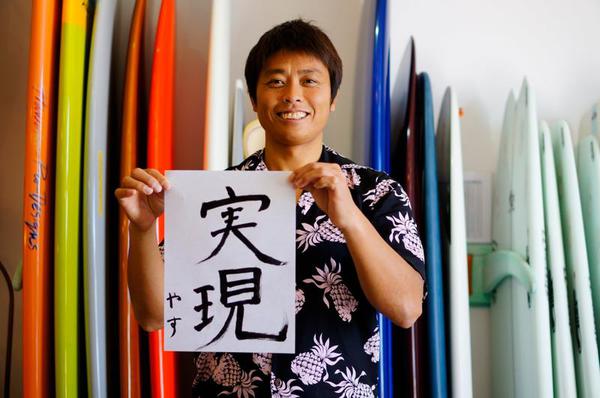 実現
やす
Designs